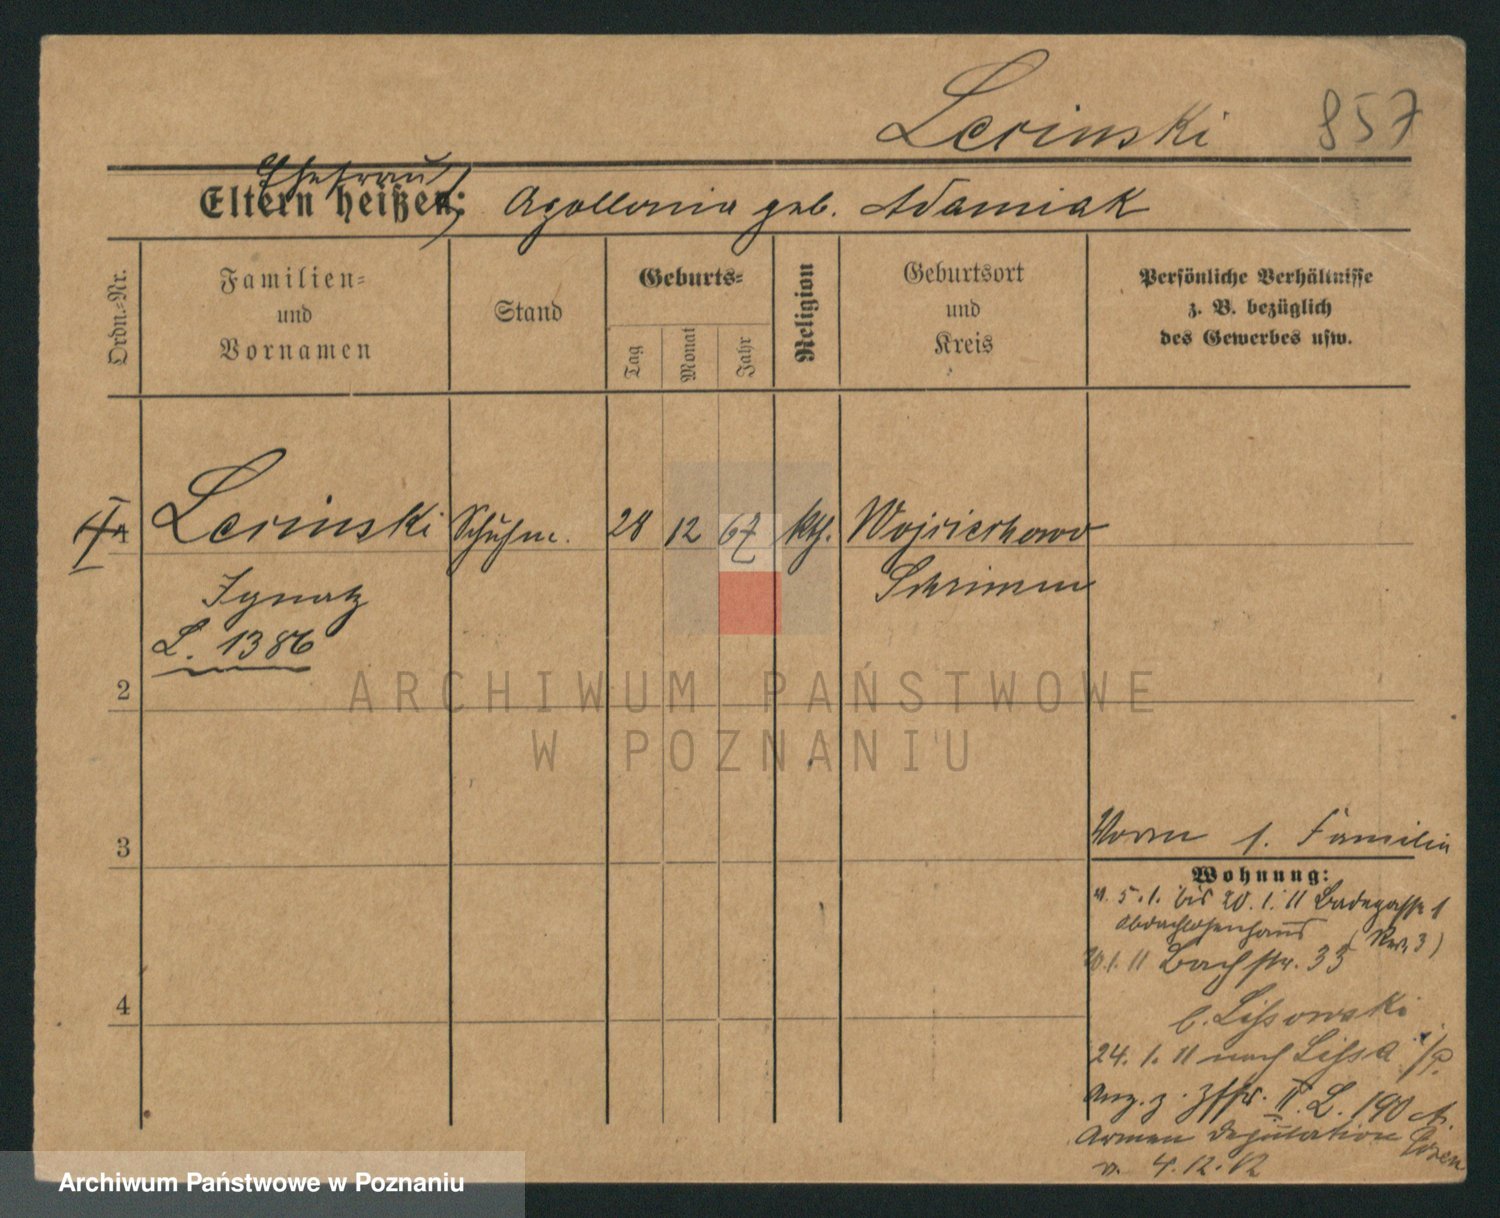 Lerinski 857
Ehefrau
Eltern heißen: Apollonia geb. Adamiak
Ordn.=Nr.
Familien=
und
Vornamen
Stand
Geburts=
Tag
Monat
Jahr
Religion
Geburtsort
und
Kreis
Persönliche Verhältnisse
z. B. bezüglich
des Gewerbes usw.
Lerinski Schuhm. 28 12 67 kth.
Schrimm
Ignatz
L. 1386
2
ARCHIWUM PAŃSTWOWE
W POZNANIU
3
1. Familie
Wohnung:
v. 5.1. bis 20.1.11 Badegasse 1
Obdachlosenhaus (Rev. 3)
20.1.11 Bachstr. 33
4
b. Lissowski
24.1.11 nach Lissa i/P.
Anz. z. II. L. 190 d.
Armen deputation Posen
v. 4.12.12
Archiwum Państwowe w Poznaniu